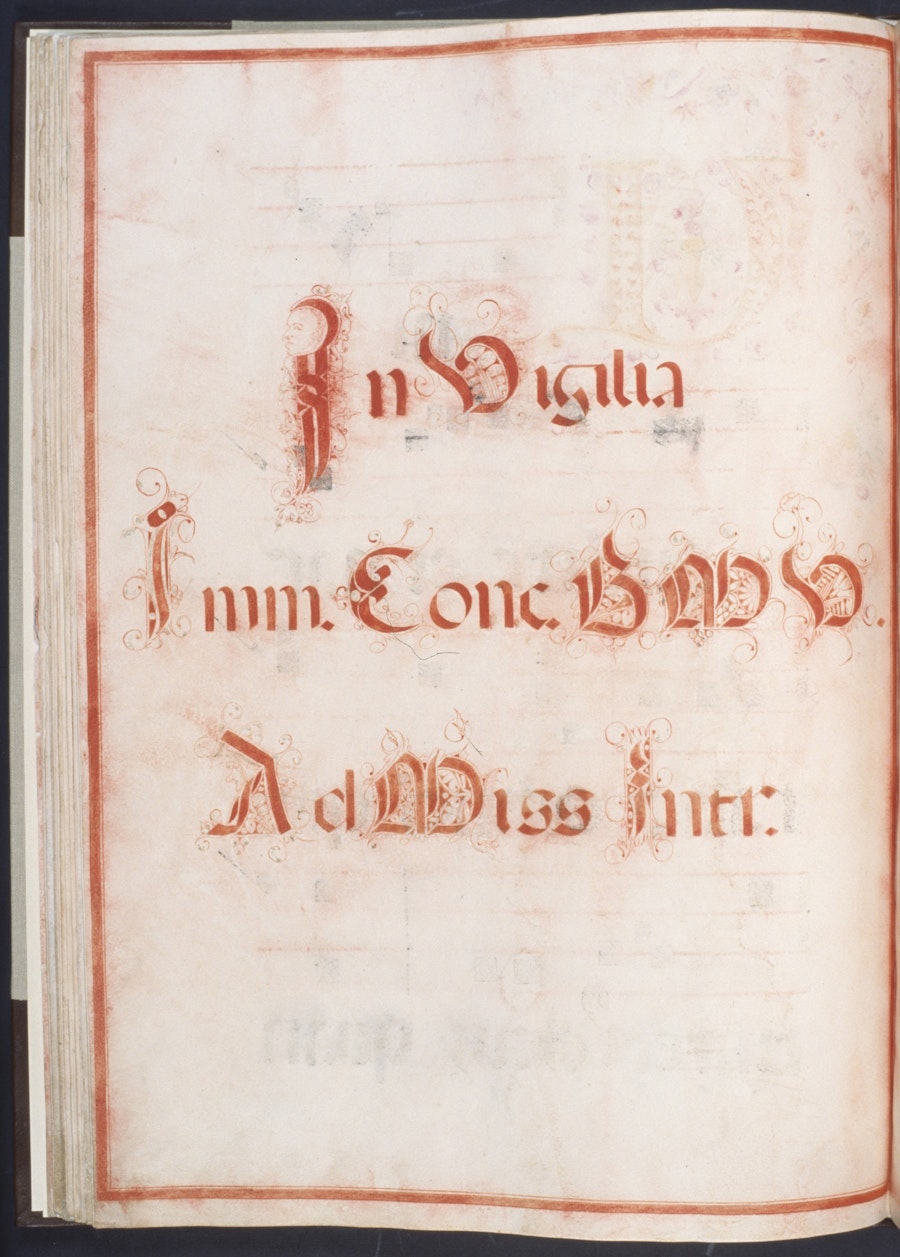 In Vigilia
Imm. Conc. B M V.
Ad Miss Intr.